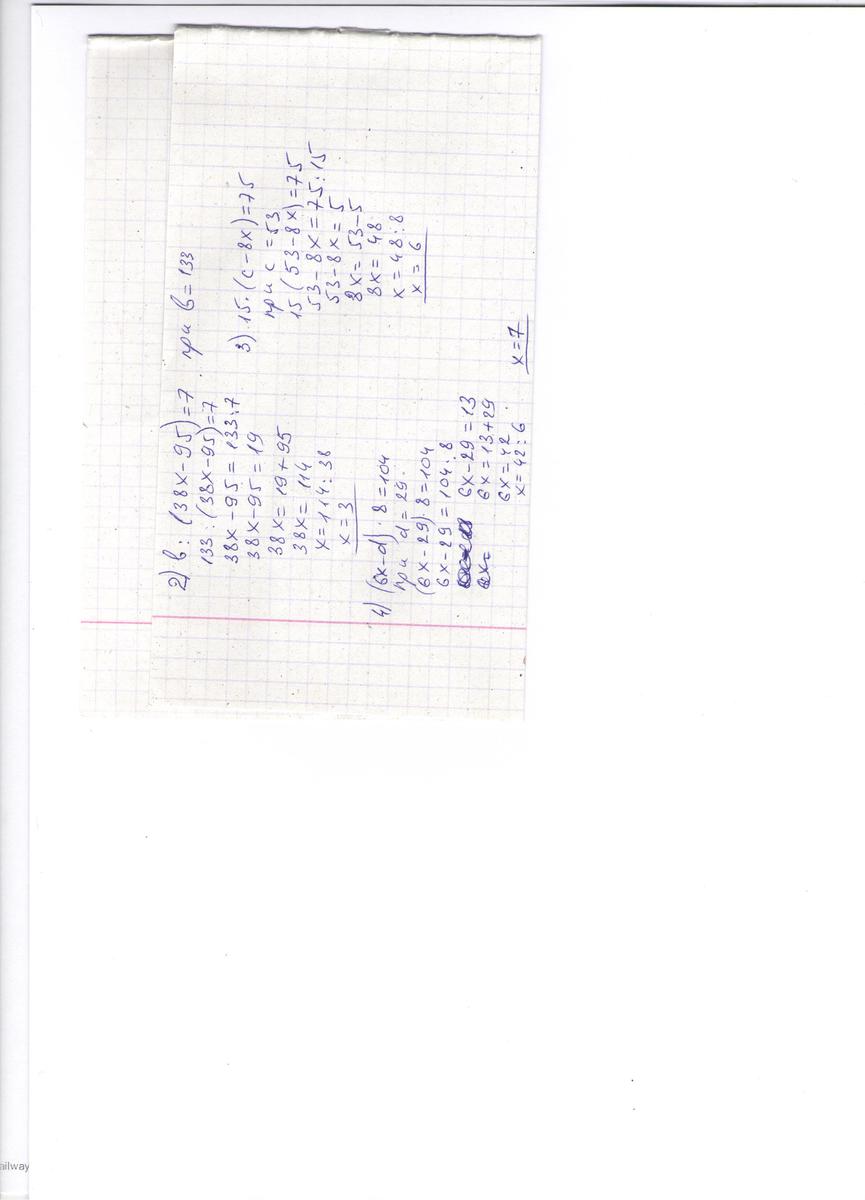 2) в : (38x-95)=7 при в=133
133 : (38x-95)=7
38x-95=133:7
38x-95=19
38x=19+95
38x=114
x=114:38
x=3
3) 15·(c-8x)=75
при c=53
15(53-8x)=75
53-8x=75:15
53-8x=5
8x=53-5
8x=48
x=48:8
x=6
4) (6x-d)·8=104
при d=29.
(6x-29)·8=104
6x-29=104:8
6x-29=13
6x=13+29
6x=42
x=42:6
x=7
ailway